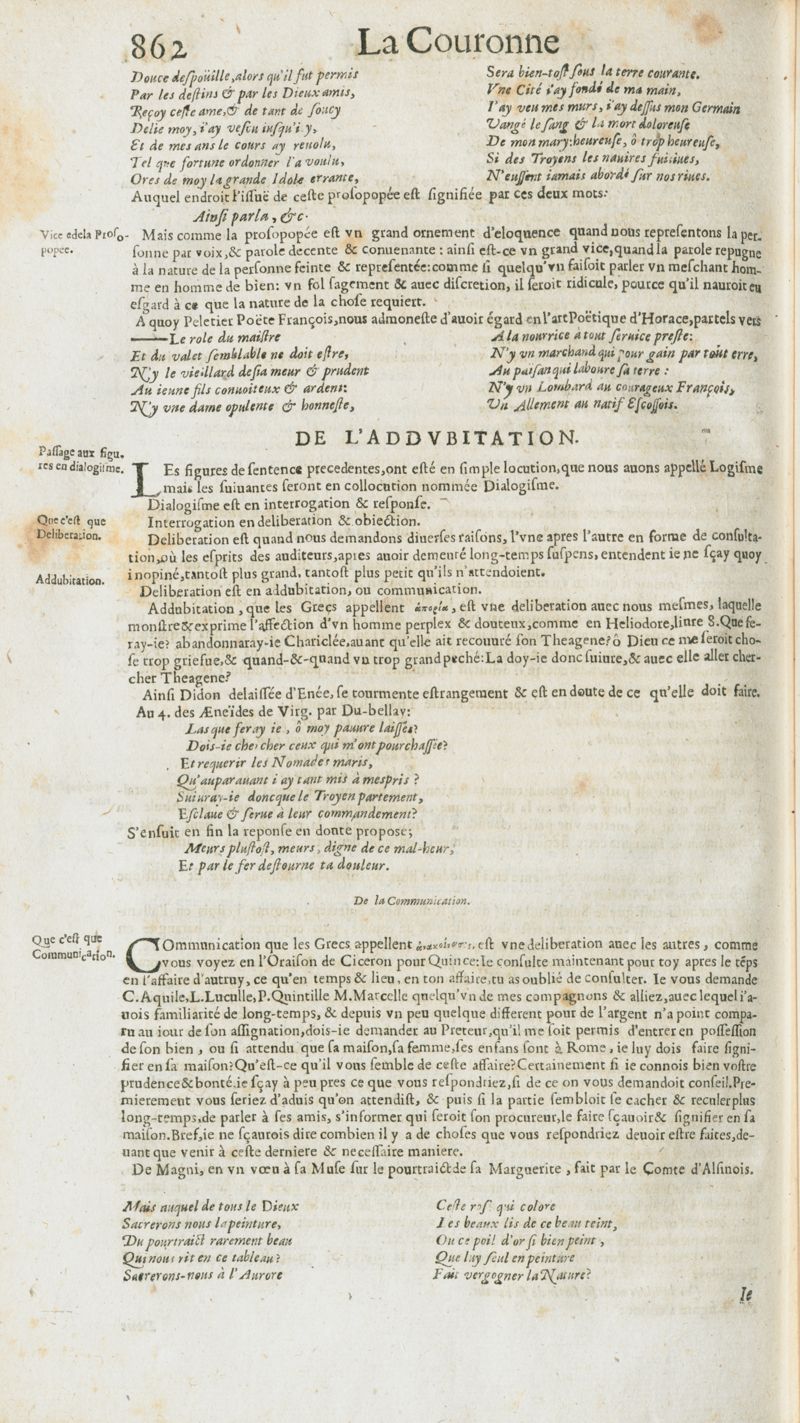 862
La Couronne
Douce deſpoüille, alors qu'il fut permis
Par les deſtins & par les Dieux amis,
Reçoy ceſte ame, & de tant de ſoucy
Delie moy, i'ay veſcu iuſqu'i y,
Et de mes ans le cours ay reuolu,
Tel que fortune ordonner l'a voulu,
Ores de moy la grande Idole errante,
Sera bien-toſt ſous la terre courante.
Vne Cité i'ay fondé de ma main,
I'ay veu mes murs, i'ay deſſus mon Germain
Vangé le ſang & la mort doloreuſe
De mon mary: heureuſe, ô trop heureuſe,
Si des Troyens les nauires fuitiues,
N'euſſent iamais abordé ſur nos riues.
Auquel endroit l'iſſuë de ceſte proſopopée eſt ſignifiée par ces deux mots:
Ainſi parla, &c.
Vice edela Proſo-
popee.
Mais comme la proſopopée eſt vn grand ornement d'eloquence quand nous repreſentons la per-
ſonne par voix, & parole decente & conuenante : ainſi eſt-ce vn grand vice, quand la parole repugne
à la nature de la perſonne feinte & repreſentée: comme ſi quelqu'vn faiſoit parler vn meſchant hom-
me en homme de bien: vn fol ſagement & auec diſcretion, il ſeroit ridicule, pource qu'il nauroit eu
eſgard à ce que la nature de la choſe requiert.
A quoy Peletier Poëte François, nous admoneſte d'auoir égard en l'art Poëtique d'Horace, par tels vers
——Le role du maiſtre
Et du valet ſemblable ne doit eſtre,
N'y le vieillard deſia meur & prudent
Au ieune fils conuoiteux & ardent:
N'y vne dame opulente & honneſte,
A la nourrice à tout ſeruice preſte:
N'y vn marchand qui pour gain par tout erre,
Au paiſan qui laboure ſa terre :
N'y vn Lombard au courageux François,
Vn Allement au natif Eſcoſſois.
DE L'ADDVBITATION.
Paſſage aux figu.
res en dialogiſme.
LEs figures de ſentence precedentes, ont eſté en ſimple locution, que nous auons appellé Logiſme
mais les ſuiuantes ſeront en collocution nommée Dialogiſme.
Dialogiſme eſt en interrogation & reſponſe.
Interrogation en deliberation & obiection.
Que c'eſt que
Deliberation.
Deliberation eſt quand nous demandons diuerſes raiſons, l'vne apres l'autre en forme de conſulta-
tion, où les eſprits des auditeurs, apres auoir demeuré long-temps ſuſpens, entendent ie ne ſçay quoy
inopiné, tantoſt plus grand, tantoſt plus petit qu'ils n'attendoient.
Deliberation eſt en addubitation, ou communication.
Addubitation.
Addubitation, que les Grecs appellent ἀπορία, eſt vne deliberation auec nous meſmes, laquelle
monſtre & exprime l'affection d'vn homme perplex & douteux, comme en Heliodore, liure 8. Que fe-
ray-ie? abandonnaray-ie Chariclée, auant qu'elle ait recouuré ſon Theagene? ô Dieu ce me ſeroit cho-
ſe trop griefue, & quand-&-quand vn trop grand peché: La doy-ie donc ſuiure, & auec elle aller cher-
cher Theagene?
Ainſi Didon delaiſſée d'Enée, ſe tourmente eſtrangement & eſt en doute de ce qu'elle doit faire.
Au 4. des Æneïdes de Virg. par Du-bellay:
Las que feray ie, ô moy pauure laiſſée?
Dois-ie chercher ceux qui m'ont pourchaſſée?
Et requerir les Nomades maris,
Qu'auparauant i'ay tant mis à mespris ?
Suiuray-ie doncque le Troyen partement,
Eſclaue & ſerue à leur commandement?
S'enſuit en fin la reponſe en doute propoſe;
Meurs pluſtoſt, meurs, digne de ce mal-heur,
Et par le fer deſtourne ta douleur.
De la Communication.
Que c'eſt que
Communication.
COmmunication que les Grecs appellent ἀνακοίνωσις, eſt vne deliberation auec les autres, comme
vous voyez en l'Oraiſon de Ciceron pour Quince: le conſulte maintenant pour toy apres le tẽps
en l'affaire d'autruy, ce qu'en temps & lieu, en ton affaire, tu as oublié de conſulter. Ie vous demande
C. Aquile, L. Luculle, P. Quintille M. Marcelle quelqu'vn de mes compagnons & alliez, auec lequel i'a-
uois familiarité de long-temps, & depuis vn peu quelque different pour de l'argent n'a point compa-
ru au iour de ſon aſſignation, dois-ie demander au Preteur, qu'il me ſoit permis d'entrer en poſſeſſion
de ſon bien, ou ſi attendu que ſa maiſon, ſa femme, ſes enfans ſont à Rome, ie luy dois faire ſigni-
fier en ſa maiſon? Qu'eſt-ce qu'il vous ſemble de ceſte affaire? Certainement ſi ie connois bien voſtre
prudence & bonté, ie ſçay à peu pres ce que vous reſpondriez, ſi de ce on vous demandoit conſeil. Pre-
mierement vous ſeriez d'aduis qu'on attendiſt, & puis ſi la partie ſembloit ſe cacher & reculer plus
long-temps, de parler à ſes amis, s'informer qui ſeroit ſon procureur, le faire ſçauoir & ſignifier en ſa
maiſon. Bref, ie ne ſçaurois dire combien il y a de choſes que vous reſpondriez deuoir eſtre faites, de-
uant que venir à ceſte derniere & neceſſaire maniere.
De Magni, en vn vœu à ſa Muſe ſur le pourtraict de ſa Marguerite, fait par le Comte d'Alſinois.
Mais auquel de tous le Dieux
Sacrerons nous la peinture,
Du pourtraict rarement beau
Qui nous rit en ce tableau?
Sacrerons-nous à l'Aurore
Ceſte roſ qui colore
Les beaux lis de ce beau teint,
Ou ce poil d'or ſi bien peint,
Que luy ſeul en peinture
Fait vergogner la Nature?
Ie